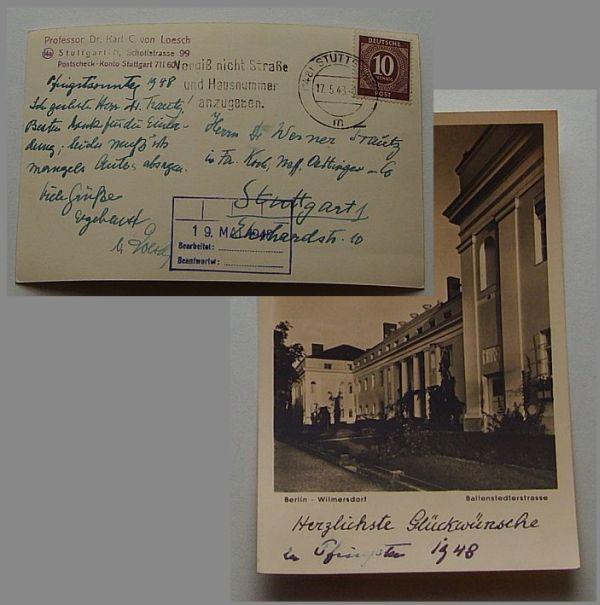 Professor Dr. Karl C. von Loesch
(14a) Stuttgart-N, Schottstrasse 99
Postscheck-Konto Stuttgart 711 60
Pfingstsonntag 1948
Ich geehrter Herr Dr. Trautz!
Besten Dank für die Einla-
dung; leider muß ich
mangels Autos absagen.
Viele Grüße
ergebenst
Loesch
Vergiß nicht Straße
und Hausnummer
anzugeben.
STUTTG
17.5.48
m
DEUTSCHE
10
PFENNIG
POST
Herrn Dr Werner Trautz
in Fa. Koch, Oettinger
Stuttgart
Eberhardstr. 10
19. MAI 1948
Bearbeitet:
Beantwortet:
Berlin - Wilmersdorf
Ballenstedterstrasse
Herzlichste Glückwünsche
zu Pfingsten 1948